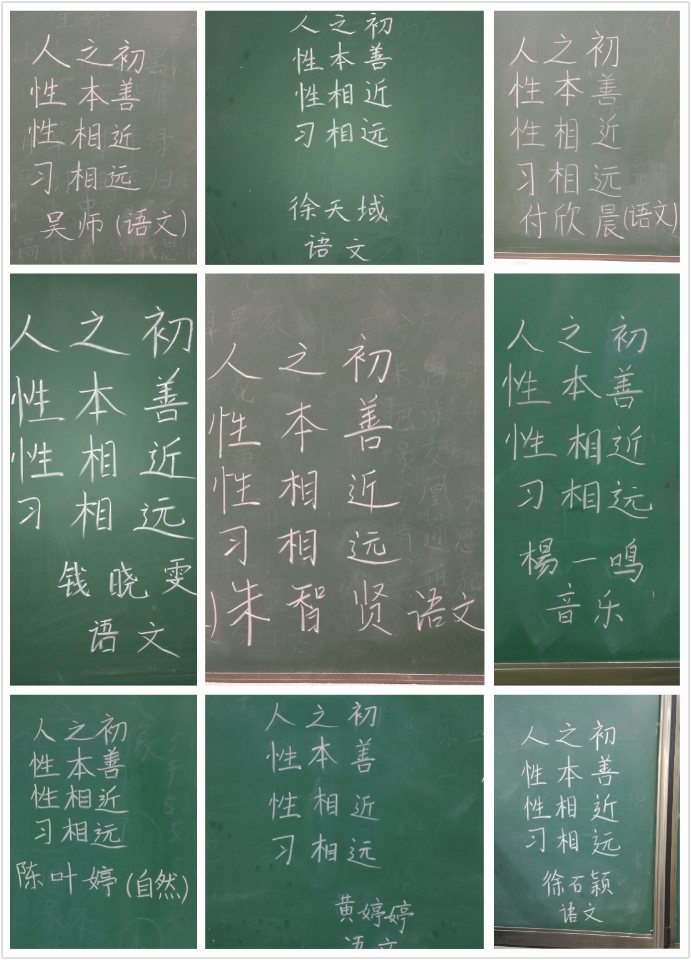 人之初
性本善
性相近
习相远
吴师(语文)
人之初
性本善
性相近
习相远
徐天域
语文
人之初
性本善
性相近
习相远
付欣晨(语文)
人之初
性本善
性相近
习相远
钱晓雯
语文
人之初
性本善
性相近
习相远
)朱智贤语文
人之初
性本善
性相近
习相远
楊一鸣
音乐
人之初
性本善
性相近
习相远
陈叶婷(自然)
人之初
性本善
性相近
习相远
黄婷婷
语文
人之初
性本善
性相近
习相远
徐石颖
语文